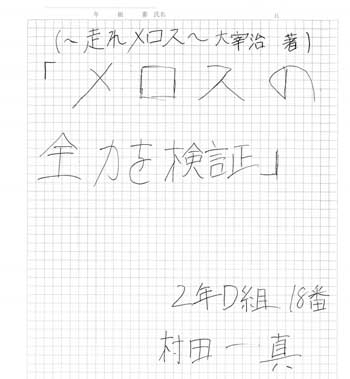 年 組 番 氏名
(~走れメロス~ 大宰治 著)
「メロスの
全力を検証」
2年D組 18番
村田一真